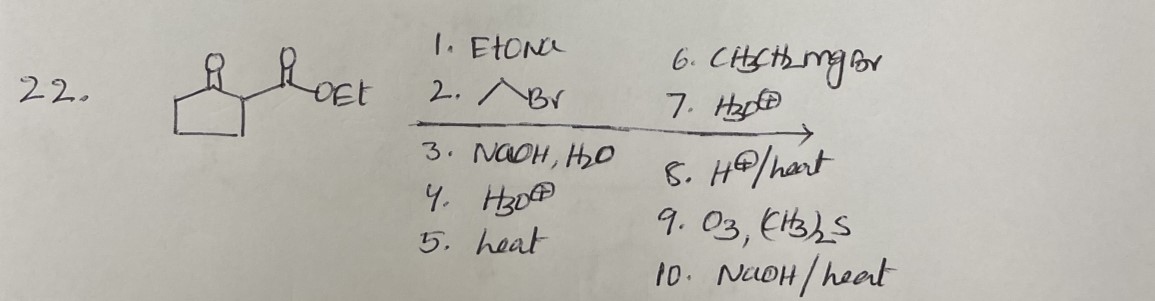 22.
O
O
OEt
1. EtONa
2. Br
3. NaOH, H2O
4. H3O⊕
5. heat
6. CH3CH2MgBr
7. H3O⊕
8. H⊕/heat
9. O3, (CH3)2S
10. NaOH/heat